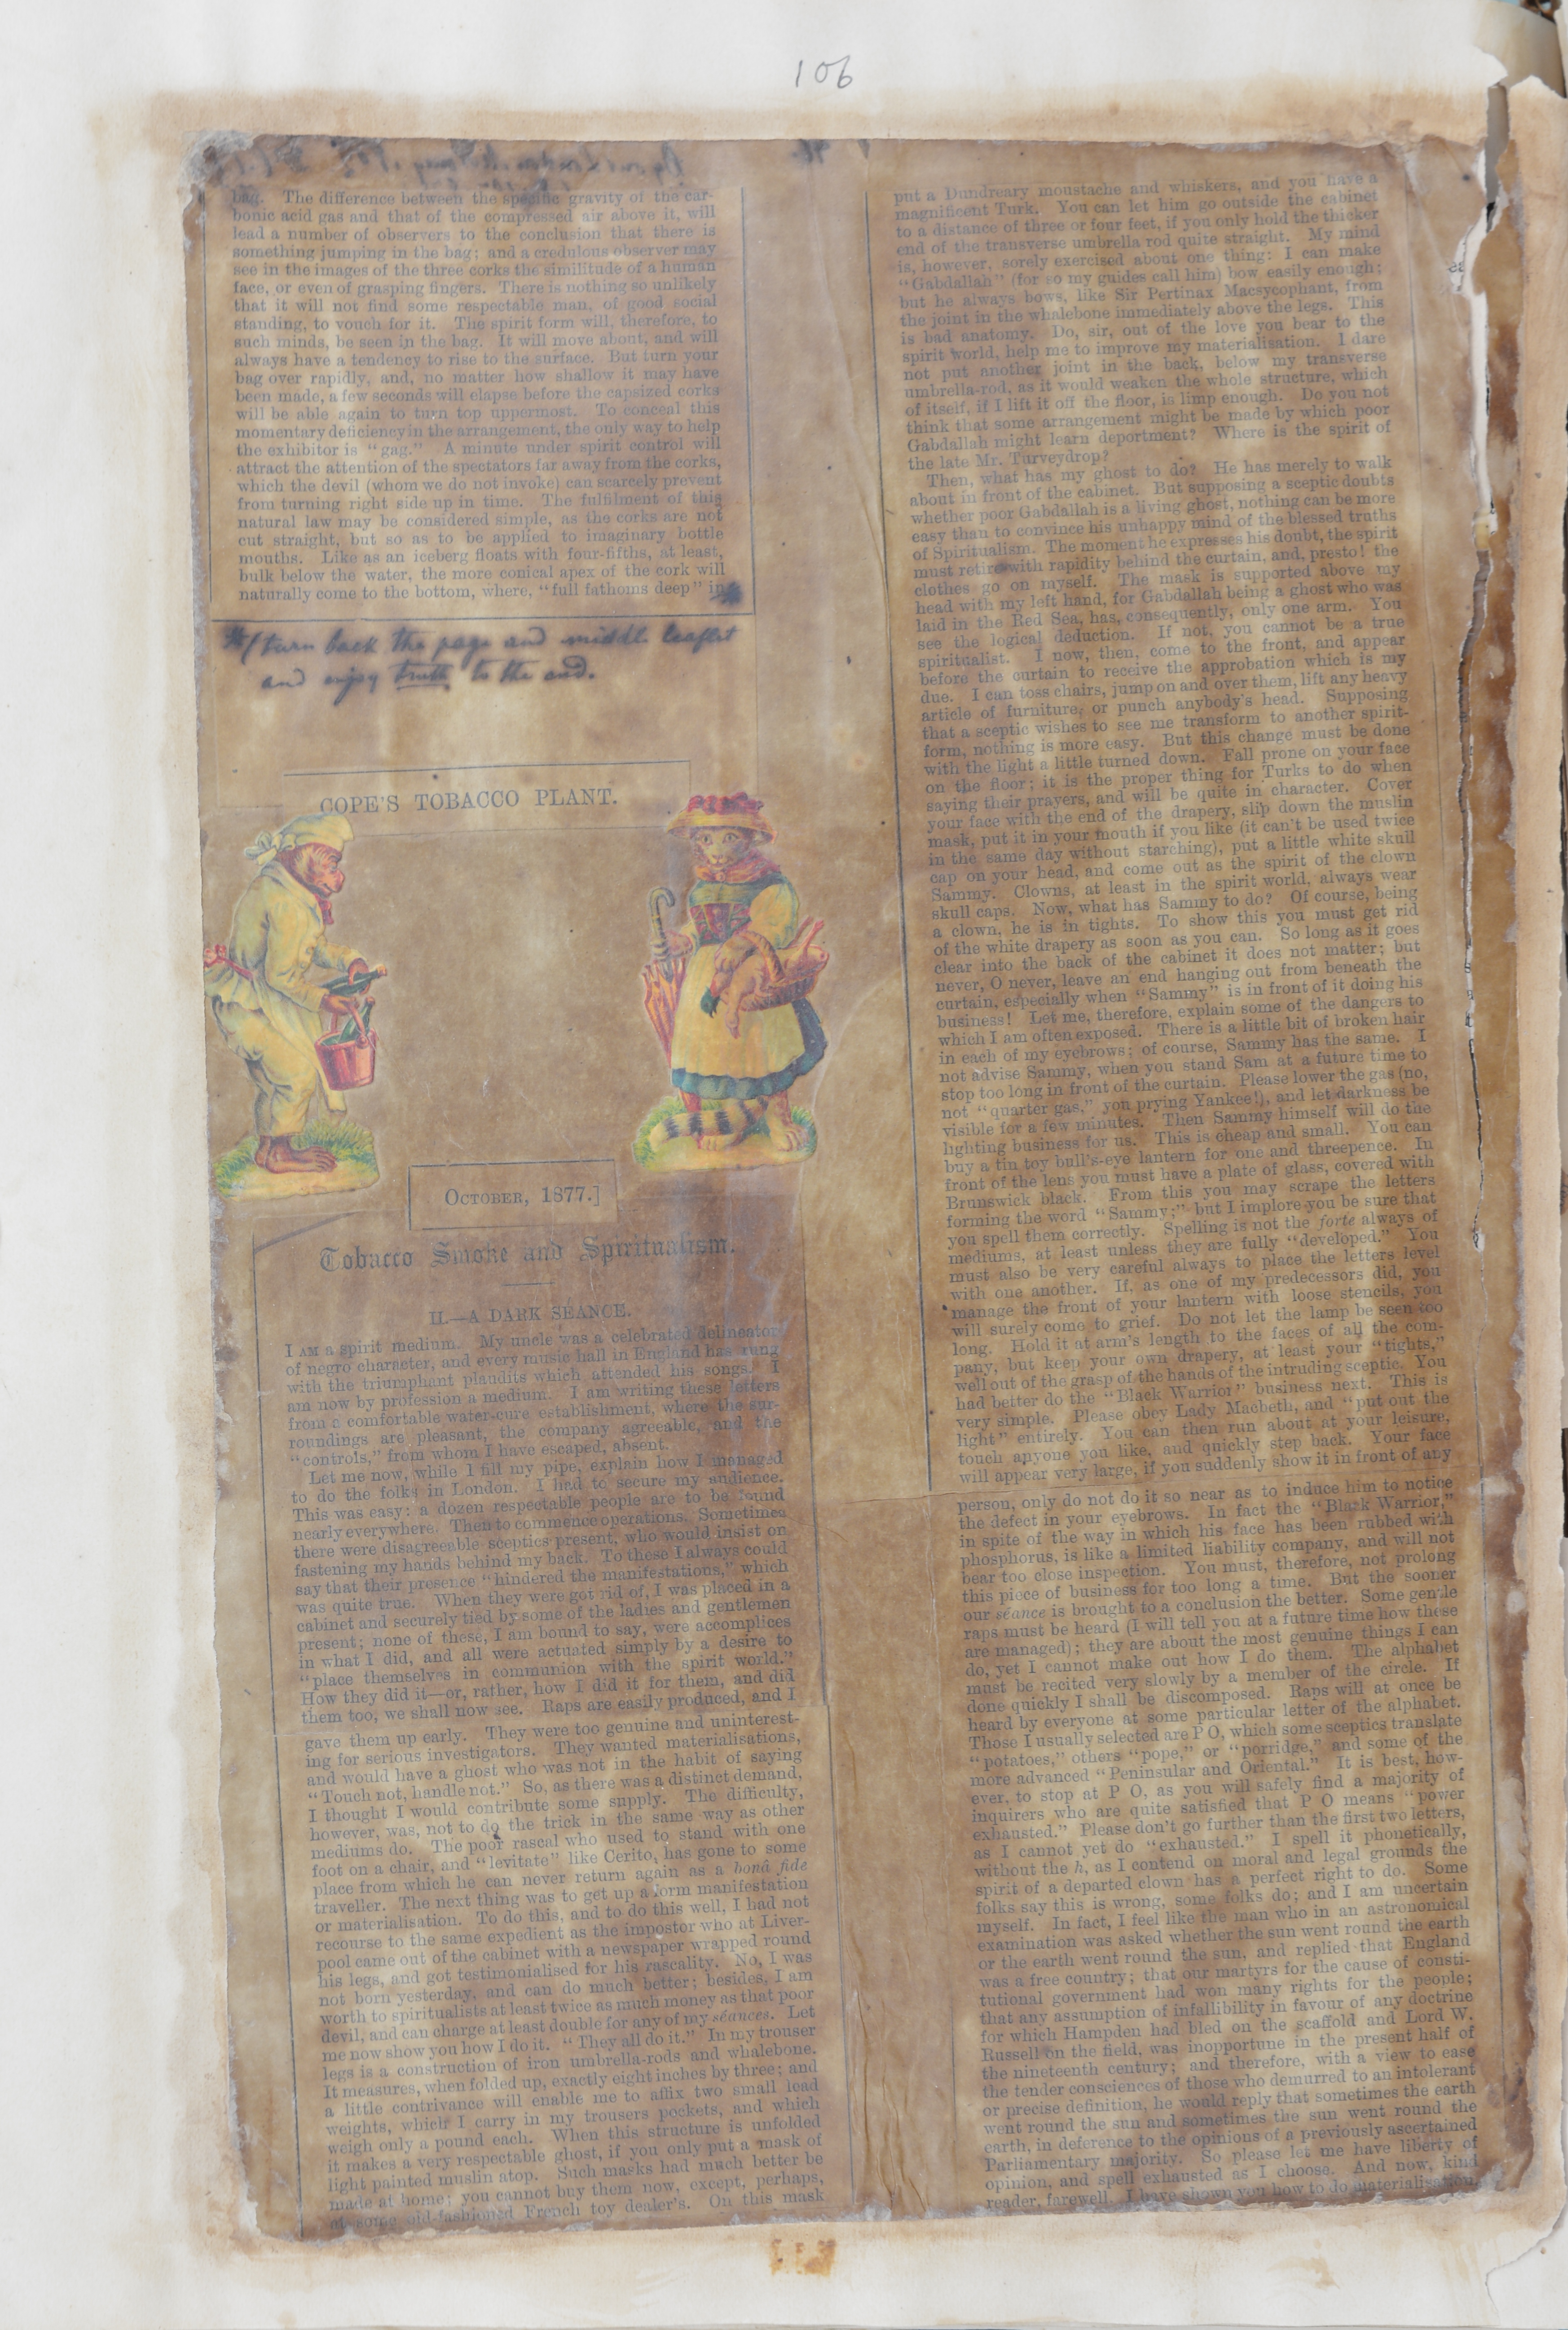 106
bag. The difference between the specific gravity of the car-
bonic acid gas and that of the compressed air above it, will
lead a number of observers to the conclusion that there is
something jumping in the bag; and a credulous observer may
see in the images of the three corks the similitude of a human
face, or even of grasping fingers. There is nothing so unlikely
that it will not find some respectable man, of good social
standing, to vouch for it. The spirit form will, therefore, to
such minds, be seen in the bag. It will move about, and will
always have a tendency to rise to the surface. But turn your
bag over rapidly, and, no matter how shallow it may have
been made, a few seconds will elapse before the capsized corks
will be able again to turn top uppermost. To conceal this
momentary deficiency in the arrangement, the only way to help
the exhibitor is "gag." A minute under spirit control will
attract the attention of the spectators far away from the corks,
which the devil (whom we do not invoke) can scarcely prevent
from turning right side up in time. The fulfilment of this
natural law may be considered simple, as the corks are not
cut straight, but so as to be applied to imaginary bottle
mouths. Like as an iceberg floats with four-fifths, at least,
bulk below the water, the more conical apex of the cork will
naturally come to the bottom, where, "full fathoms deep" in
(turn back the page and middle leaflet
and enjoy truth to the end.
COPE'S TOBACCO PLANT.
OCTOBER, 1877.]
Tobacco Smoke and Spiritualism.
II.—A DARK SÉANCE.
I AM a spirit medium. My uncle was a celebrated delineator
of negro character, and every music hall in England has rung
with the triumphant plaudits which attended his songs. I
am now by profession a medium. I am writing these letters
from a comfortable water-cure establishment, where the sur-
roundings are pleasant, the company agreeable, and the
"controls," from whom I have escaped, absent.
Let me now, while I fill my pipe, explain how I managed
to do the folks in London. I had to secure my audience.
This was easy: a dozen respectable people are to be found
nearly everywhere. Then to commence operations. Sometimes
there were disagreeable sceptics present, who would insist on
fastening my hands behind my back. To these I always could
say that their presence "hindered the manifestations," which
was quite true. When they were got rid of, I was placed in a
cabinet and securely tied by some of the ladies and gentlemen
present; none of these, I am bound to say, were accomplices
in what I did, and all were actuated simply by a desire to
"place themselves in communion with the spirit world."
How they did it—or, rather, how I did it for them, and did
them too, we shall now see. Raps are easily produced, and I
gave them up early. They were too genuine and uninterest-
ing for serious investigators. They wanted materialisations,
and would have a ghost who was not in the habit of saying
"Touch not, handle not." So, as there was a distinct demand,
I thought I would contribute some supply. The difficulty,
however, was, not to do the trick in the same way as other
mediums do. The poor rascal who used to stand with one
foot on a chair, and "levitate" like Cerito, has gone to some
place from which he can never return again as a bonâ fide
traveller. The next thing was to get up a form manifestation
or materialisation. To do this, and to do this well, I had not
recourse to the same expedient as the impostor who at Liver-
pool came out of the cabinet with a newspaper wrapped round
his legs, and got testimonialised for his rascality. No, I was
not born yesterday, and can do much better; besides, I am
worth to spiritualists at least twice as much money as that poor
devil, and can charge at least double for any of my séances. Let
me now show you how I do it. "They all do it." In my trouser
legs is a construction of iron umbrella-rods and whalebone.
It measures, when folded up, exactly eight inches by three; and
a little contrivance will enable me to affix two small lead
weights, which I carry in my trousers pockets, and which
weigh only a pound each. When this structure is unfolded
it makes a very respectable ghost, if you only put a mask of
light painted muslin atop. Such masks had much better be
made at home; you cannot buy them now, except, perhaps,
at some old-fashioned French toy dealer's. On this mask
put a Dundreary moustache and whiskers, and you have a
magnificent Turk. You can let him go outside the cabinet
to a distance of three or four feet, if you only hold the thicker
end of the transverse umbrella rod quite straight. My mind
is, however, sorely exercised about one thing: I can make
"Gabdallah" (for so my guides call him) bow easily enough;
but he always bows, like Sir Pertinax Macsycophant, from
the joint in the whalebone immediately above the legs. This
is bad anatomy. Do, sir, out of the love you bear to the
spirit world, help me to improve my materialisation. I dare
not put another joint in the back, below my transverse
umbrella-rod, as it would weaken the whole structure, which
of itself, if I lift it off the floor, is limp enough. Do you not
think that some arrangement might be made by which poor
Gabdallah might learn deportment? Where is the spirit of
the late Mr. Turveydrop?
Then, what has my ghost to do? He has merely to walk
about in front of the cabinet. But supposing a sceptic doubts
whether poor Gabdallah is a living ghost, nothing can be more
easy than to convince his unhappy mind of the blessed truths
of Spiritualism. The moment he expresses his doubt, the spirit
must retire with rapidity behind the curtain, and, presto! the
clothes go on myself. The mask is supported above my
head with my left hand, for Gabdallah being a ghost who was
laid in the Red Sea, has, consequently, only one arm. You
see the logical deduction. If not, you cannot be a true
spiritualist. I now, then, come to the front, and appear
before the curtain to receive the approbation which is my
due. I can toss chairs, jump on and over them, lift any heavy
article of furniture, or punch anybody's head. Supposing
that a sceptic wishes to see me transform to another spirit-
form, nothing is more easy. But this change must be done
with the light a little turned down. Fall prone on your face
on the floor; it is the proper thing for Turks to do when
saying their prayers, and will be quite in character. Cover
your face with the end of the drapery, slip down the muslin
mask, put it in your mouth if you like (it can't be used twice
in the same day without starching), put a little white skull
cap on your head, and come out as the spirit of the clown
Sammy. Clowns, at least in the spirit world, always wear
skull caps. Now, what has Sammy to do? Of course, being
a clown, he is in tights. To show this you must get rid
of the white drapery as soon as you can. So long as it goes
clear into the back of the cabinet it does not matter; but
never, O never, leave an end hanging out from beneath the
curtain, especially when "Sammy" is in front of it doing his
business! Let me, therefore, explain some of the dangers to
which I am often exposed. There is a little bit of broken hair
in each of my eyebrows; of course, Sammy has the same. I
not advise Sammy, when you stand Sam at a future time to
stop too long in front of the curtain. Please lower the gas (no,
not "quarter gas," you prying Yankee!), and let darkness be
visible for a few minutes. Then Sammy himself will do the
lighting business for us. This is cheap and small. You can
buy a tin toy bull's-eye lantern for one and threepence. In
front of the lens you must have a plate of glass, covered with
Brunswick black. From this you may scrape the letters
forming the word "Sammy;" but I implore you be sure that
you spell them correctly. Spelling is not the forte always of
mediums, at least unless they are fully "developed." You
must also be very careful always to place the letters level
with one another. If, as one of my predecessors did, you
manage the front of your lantern with loose stencils, you
will surely come to grief. Do not let the lamp be seen too
long. Hold it at arm's length to the faces of all the com-
pany, but keep your own drapery, at least your "tights,"
well out of the grasp of the hands of the intruding sceptic. You
had better do the "Black Warrior" business next. This is
very simple. Please obey Lady Macbeth, and "put out the
light" entirely. You can then run about at your leisure,
touch anyone you like, and quickly step back. Your face
will appear very large, if you suddenly show it in front of any
person, only do not do it so near as to induce him to notice
the defect in your eyebrows. In fact the "Black Warrior,"
in spite of the way in which his face has been rubbed with
phosphorus, is like a limited liability company, and will not
bear too close inspection. You must, therefore, not prolong
this piece of business for too long a time. But the sooner
our séance is brought to a conclusion the better. Some gentle
raps must be heard (I will tell you at a future time how these
are managed); they are about the most genuine things I can
do, yet I cannot make out how I do them. The alphabet
must be recited very slowly by a member of the circle. If
done quickly I shall be discomposed. Raps will at once be
heard by everyone at some particular letter of the alphabet.
Those I usually selected are P O, which some sceptics translate
"potatoes," others "pope," or "porridge," and some of the
more advanced "Peninsular and Oriental." It is best, how-
ever, to stop at P O, as you will safely find a majority of
inquirers who are quite satisfied that P O means "power
exhausted." Please don't go further than the first two letters,
as I cannot yet do "exhausted." I spell it phonetically,
without the h, as I contend on moral and legal grounds the
spirit of a departed clown has a perfect right to do. Some
folks say this is wrong, some folks do; and I am uncertain
myself. In fact, I feel like the man who in an astronomical
examination was asked whether the sun went round the earth
or the earth went round the sun, and replied that England
was a free country; that our martyrs for the cause of consti-
tutional government had won many rights for the people;
that any assumption of infallibility in favour of any doctrine
for which Hampden had bled on the scaffold and Lord W.
Russell on the field, was inopportune in the present half of
the nineteenth century; and therefore, with a view to ease
the tender consciences of those who demurred to an intolerant
or precise definition, he would reply that sometimes the earth
went round the sun and sometimes the sun went round the
earth, in deference to the opinions of a previously ascertained
Parliamentary majority. So please let me have liberty of
opinion, and spell exhausted as I choose. And now, kind
reader, farewell. I have shown you how to do materialisation,